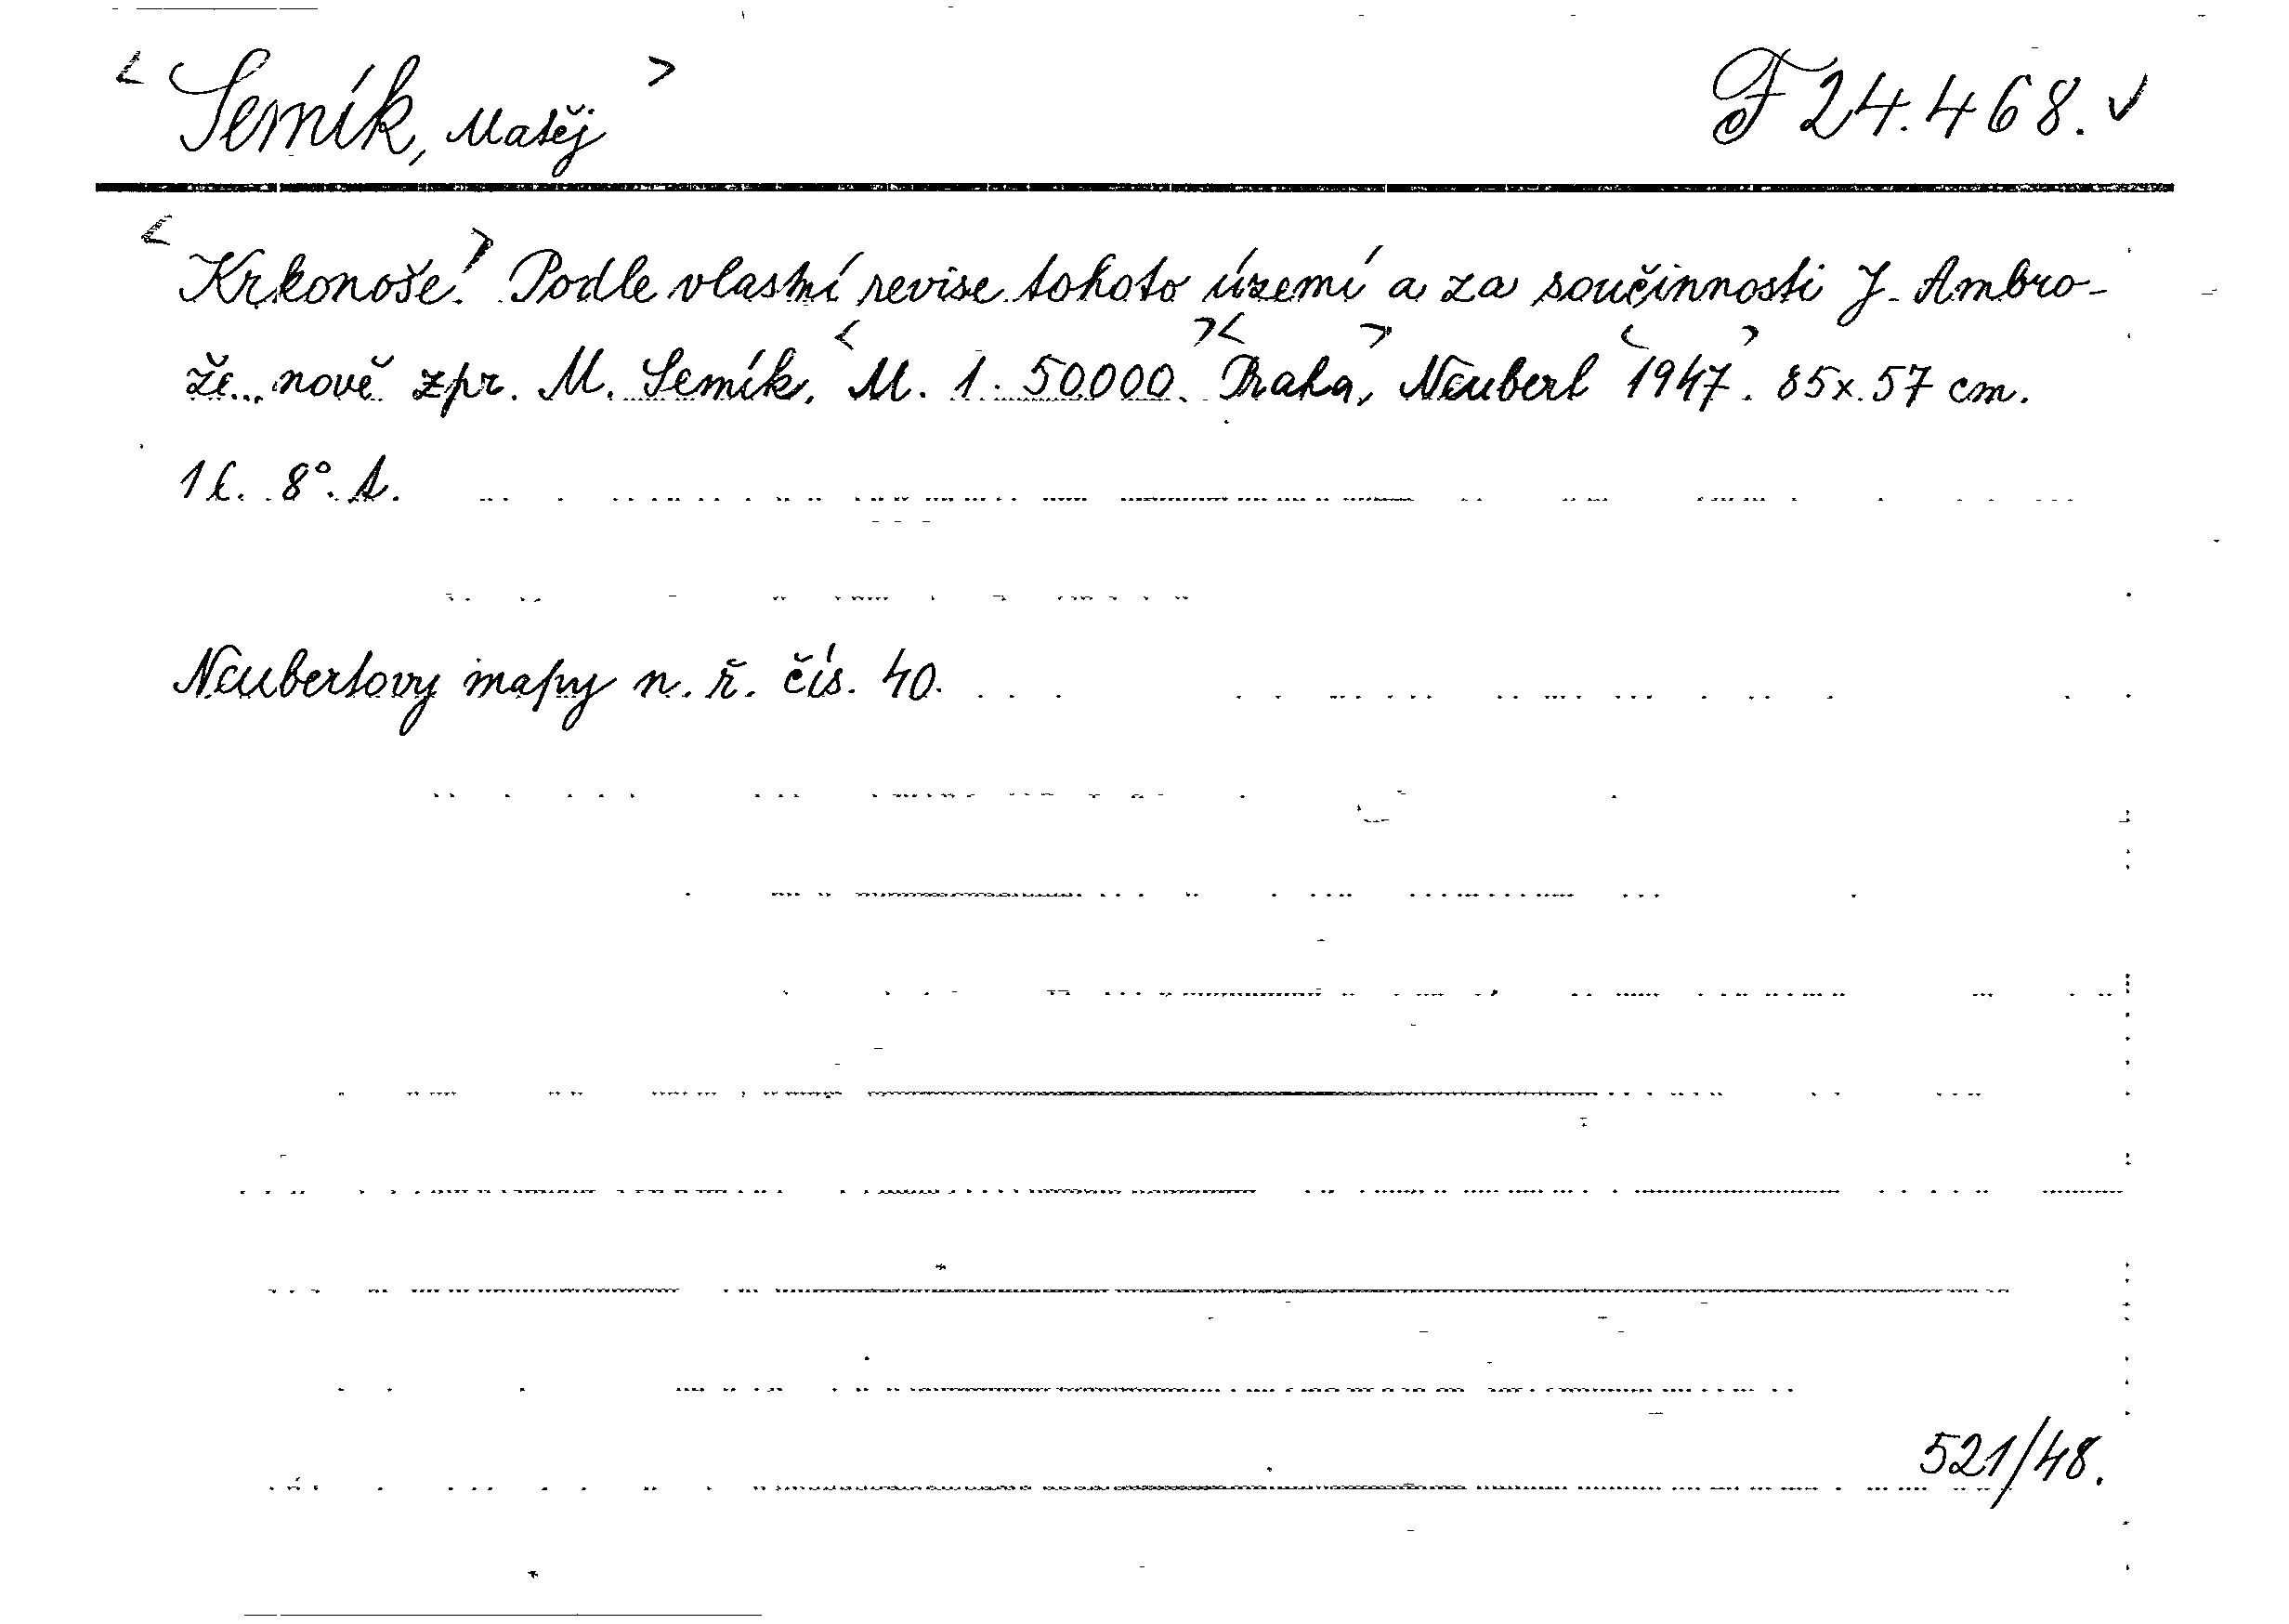 < Semík, Matěj > F 24.468. ✓
< Krkonoše. > Podle vlastní revise tohoto území a za součinnosti J. Ambro-
že... nově zpr. M. Semík. < M. 1:50000. > < Praha, > Neubert < 1947 >. 85x57 cm.
1 l. 8°. A.
Neubertovy mapy n. ř. čís. 40.
521/48.